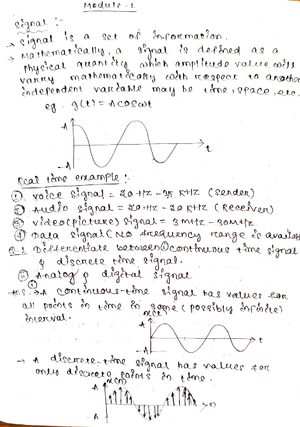 Module-1
Signal :-
→ Signal is a set of information.
→ Mathematically, a signal is defined as a
physical quantity which amplitude value will
varry mathematically with respect to another
independent variable may be time, space, etc.
eg. g(t) = A cos ωt
A
t
-A
Real time example :-
① Voice signal = 20 HZ - 35 KHZ (sender)
② Audio signal = 20 HZ - 20 KHZ (Receiver)
③ Video (picture) signal = 3 MHZ - 30 MHZ
④ Data signal (No frequency range is availa
Q.1 Differentiate between ① continuous time signal
& discrete time signal.
② Analog & digital signal
Ans. ① → A continuous-time signal has values for
all points in time in some (possibly infinite)
interval.
x(t)
A
t
-A
→ A discrete-time signal has values for
only discrete points in time.
x(n)
A
n
-A